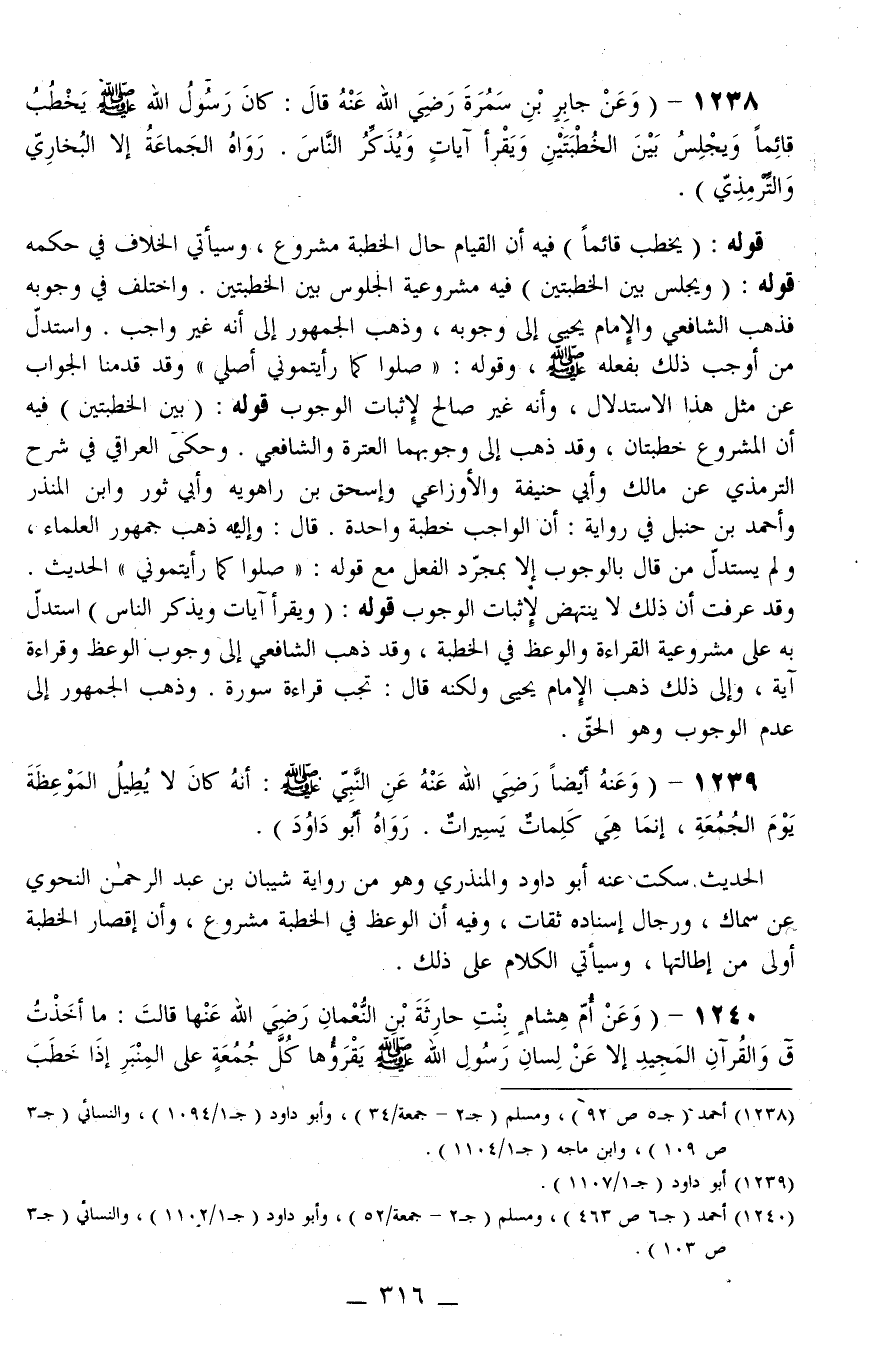 ١٢٣٨ - ( وَعَنْ جابِرِ بْنِ سَمُرَةَ رَضِيَ الله عَنْهُ قالَ : كانَ رَسُولُ الله ﷺ يَخْطُبُ
قائِماً وَيجْلِسُ بَيْنَ الخُطْبَتَيْنِ وَيَقْرأ آياتٍ وَيُذَكِّرُ النَّاسَ . رَوَاهُ الجَماعَةُ إلا البُخاريّ
وَالتِّرْمِذِيّ ) .
قوله : ( يخطب قائماً ) فيه أن القيام حال الخطبة مشروع ، وسيأتي الخلاف في حكمه
قوله : ( ويجلس بين الخطبتين ) فيه مشروعية الجلوس بين الخطبتين . واختلف في وجوبه
فذهب الشافعي والإمام يحيى إلى وجوبه ، وذهب الجمهور إلى أنه غير واجب . واستدلّ
من أوجب ذلك بفعله ﷺ ، وقوله : « صلوا كما رأيتموني أصلي » وقد قدمنا الجواب
عن مثل هذا الاستدلال ، وأنه غير صالح لإثبات الوجوب قوله : ( بين الخطبتين ) فيه
أن المشروع خطبتان ، وقد ذهب إلى وجوبهما العترة والشافعي . وحكى العراقي في شرح
الترمذي عن مالك وأبي حنيفة والأوزاعي وإسحق بن راهويه وأبي ثور وابن المنذر
وأحمد بن حنبل في رواية : أن الواجب خطبة واحدة . قال : وإليه ذهب جمهور العلماء ،
ولم يستدلّ من قال بالوجوب إلا بمجرّد الفعل مع قوله : « صلوا كما رأيتموني » الحديث .
وقد عرفت أن ذلك لا ينتهض لإثبات الوجوب قوله : ( ويقرأ آيات ويذكر الناس ) استدلّ
به على مشروعية القراءة والوعظ في الخطبة ، وقد ذهب الشافعي إلى وجوب الوعظ وقراءة
آية ، وإلى ذلك ذهب الإمام يحيى ولكنه قال : تجب قراءة سورة . وذهب الجمهور إلى
عدم الوجوب وهو الحقّ .
١٢٣٩ - ( وَعَنهُ أيْضاً رَضِيَ الله عَنْهُ عَنِ النَّبِيّ ﷺ : أنهُ كانَ لا يُطِيلُ المَوْعِظَةَ
يَوْمَ الجُمُعَةِ ، إنمَا هِيَ كَلِماتٌ يَسِيراتٌ . رَوَاهُ أبُو دَاوُدَ ) .
الحديث سكت عنه أبو داود والمنذري وهو من رواية شيبان بن عبد الرحمـٰن النحوي
عن سماك ، ورجال إسناده ثقات ، وفيه أن الوعظ في الخطبة مشروع ، وأن إقصار الخطبة
أولى من إطالتها ، وسيأتي الكلام على ذلك .
١٢٤٠ - ( وَعَنْ أُمّ هِشامٍ بِنْتِ حارِثَةَ بْنِ النُّعْمانِ رَضِيَ الله عَنْها قالَتَ : ما أخَذْتُ
قَ وَالقُرآنِ المَجِيدِ إلا عَنْ لِسانِ رَسُولِ الله ﷺ يَقْرَؤُها كُلَّ جُمُعَةٍ على المِنْبَرِ إذَا خَطَبَ
(١٢٣٨) أحمد ( جـ٥ ص ٩٢ ) ، ومسلم ( جـ٢ - جمعة/٣٤ ) ، وأبو داود ( جـ١٠٩٤/١ ) ، والنسائي ( جـ٣
ص ١٠٩ ) ، وابن ماجه ( جـ١١٠٤/١ ) .
(١٢٣٩) أبو داود ( جـ١١٠٧/١ ) .
(١٢٤٠) أحمد ( جـ٦ ص ٤٦٣ ) ، ومسلم ( جـ٢ - جمعة/٥٢ ) ، وأبو داود ( جـ١١٠٢/١ ) ، والنسائي ( جـ٣
ص ١٠٣ ) .
ـ ٣١٦ ـ